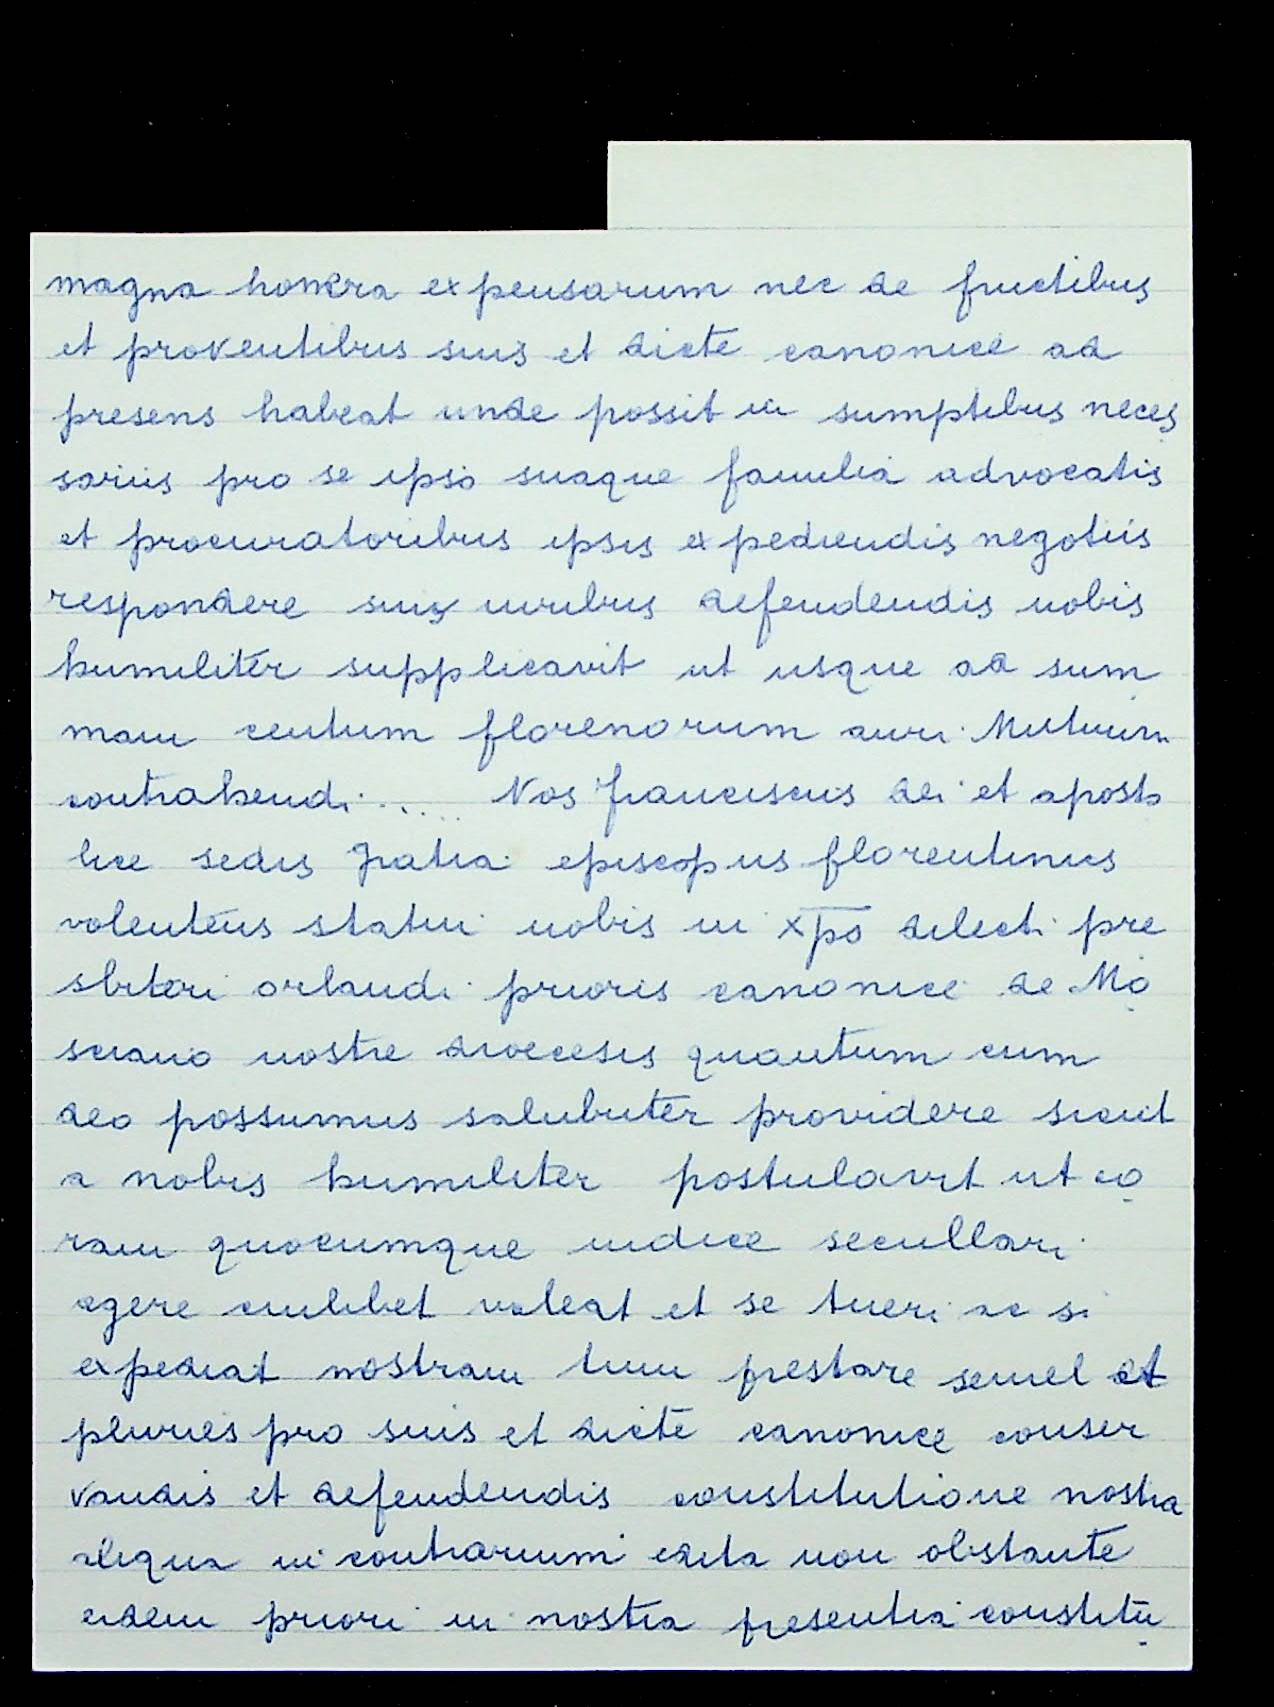 magna honera expensarum nec de fructibus
et proventibus suis et dicte canonice ad
presens habeat unde possit in sumptibus neces
sariis pro se ipso suaque familia advocatis
et procuratoribus ipsis expediendis negotiis
respondere suis iuribus defendendis nobis
humiliter supplicavit ut usque ad sum
mam centum florenorum auri Mutuum
contrahendi..... Nos franciscus dei et aposto
lice sedis gratia episcopus florentinus
volentens statui nobis in xpo dilecti pre
sbiteri orlandi prioris canonice de Mo
sciano nostre dioecesis quantum cum
deo possumus salubriter providere sicut
a nobis humiliter postulavit ut co
ram quocumque iudice secullari
agere cuilibet valeat et se tueri ac si
expediat nostram prestare semel et
pluries pro suis et dicte canonice conser
vandis et defendendis constitutione nostra
aliqua in contrarium edita non obstante
eidem priori in nostra presentia constitu